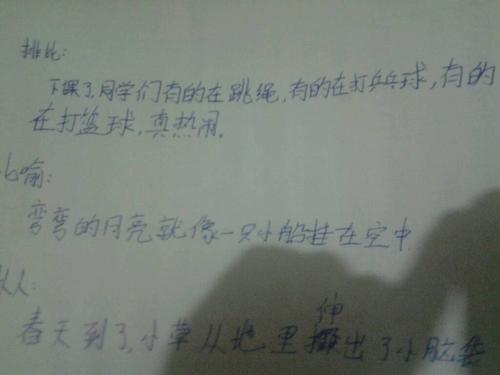 排比:
下课了,同学们有的在跳绳,有的在打乒乓球,有的
在打篮球,真热闹。
比喻:
弯弯的月亮就像一只小船挂在空中
拟人:
春天到了,小草从地里伸出了小脑袋